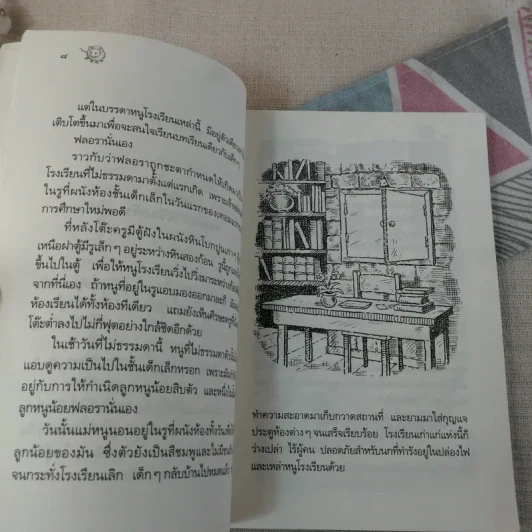 ๘
แต่ในบรรดาหนูโรงเรียนเหล่านี้ มีอยู่ตัว
เติบโตขึ้นมาเพื่อจะสนใจเรียนบทเรียนเดียวกับเด็ก
ฟลอรานั่นเอง
ราวกับว่าฟลอราถูกชะตากำหนดให้เกิดมา
โรงเรียนที่ไม่ธรรมดามาตั้งแต่แรกเกิด
ในรูที่ผนังห้องชั้นเด็กเล็กในวันแรกของเทอม
การศึกษาใหม่พอดี
ที่หลังโต๊ะครูมีตู้ฝังในผนังหินโบกปูนเก่าๆ
เหนือฝาตู้มีรูเล็กๆ อยู่ระหว่างหินสองก้อน
ขึ้นไปในตู้ เพื่อให้หนูโรงเรียนวิ่งไปวิ่งมาระหว่าง
จากที่นี่เอง ถ้าหนูที่อยู่ในรูแอบมองออกมาละก็
ห้องเรียนได้ทั้งห้องทีเดียว แถมยังเห็นศีรษะครู
โต๊ะต่ำลงไปไม่กี่ฟุตอย่างใกล้ชิดอีกด้วย
ในเช้าวันที่ไม่ธรรมดานี้ หนูที่ไม่ธรรมดาตัวนี้
แอบดูความเป็นไปในชั้นเด็กเล็กหรอก เพราะ
อยู่กับการให้กำเนิดลูกหนูน้อยสิบตัว และหนึ่งใน
ลูกหนูน้อยฟลอรานั่นเอง
วันนั้นแม่หนูนอนอยู่ในรูที่ผนังห้องทั้งวัน
ลูกน้อยของมัน ซึ่งตัวยังเป็นสีชมพูและไม่มีขน
จนกระทั่งโรงเรียนเลิก เด็กๆ กลับบ้านไปหมดแล้ว
ทำความสะอาดมาเก็บกวาดสถานที่ และยามมาใส่กุญแจ
ประตูห้องต่างๆ จนเสร็จเรียบร้อย โรงเรียนเก่าแก่แห่งนี้ก็
ว่างเปล่า ไร้ผู้คน ปลอดภัยสำหรับนกที่ทำรังอยู่ในปล่องไฟ
และเหล่าหนูโรงเรียนด้วย